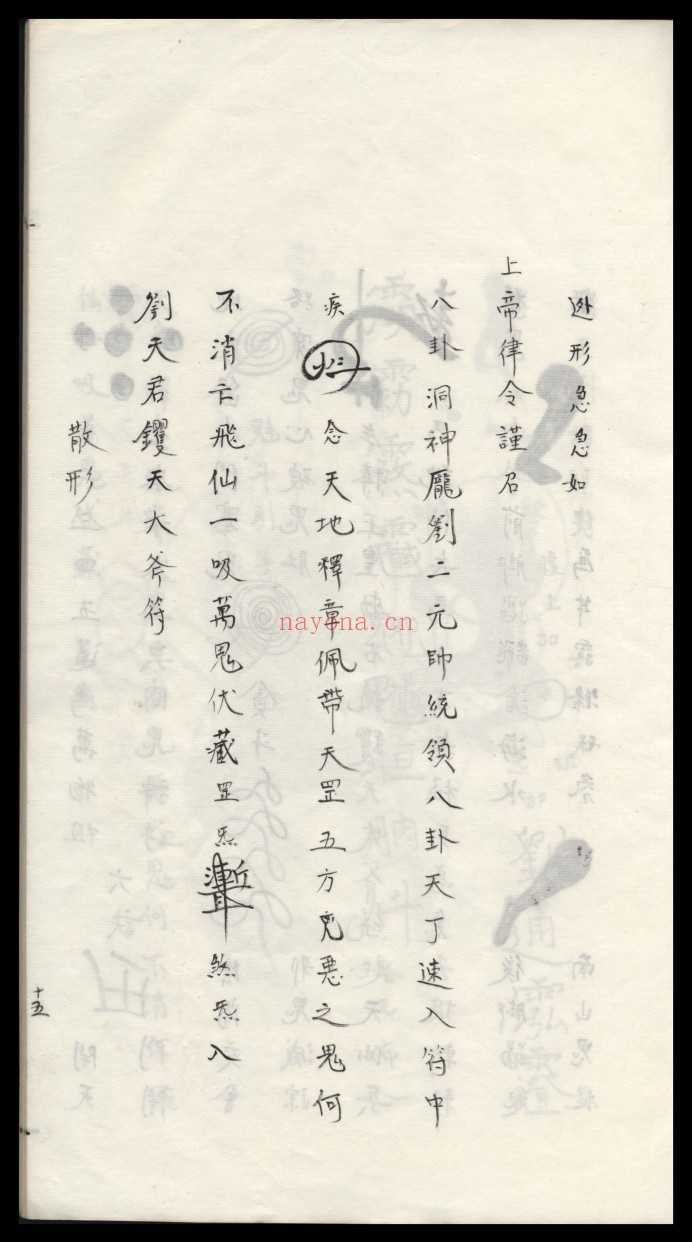 迯形急急如
上帝律令謹召
八卦洞神龐劉二元帥統領八卦天丁速入符中
疾 念天地釋章佩帶天罡五方兇惡之鬼何
不消亡飛仙一吸萬鬼伏藏罡炁 煞炁入
劉天君鑊天大斧符
散形
十五
nayona.cn